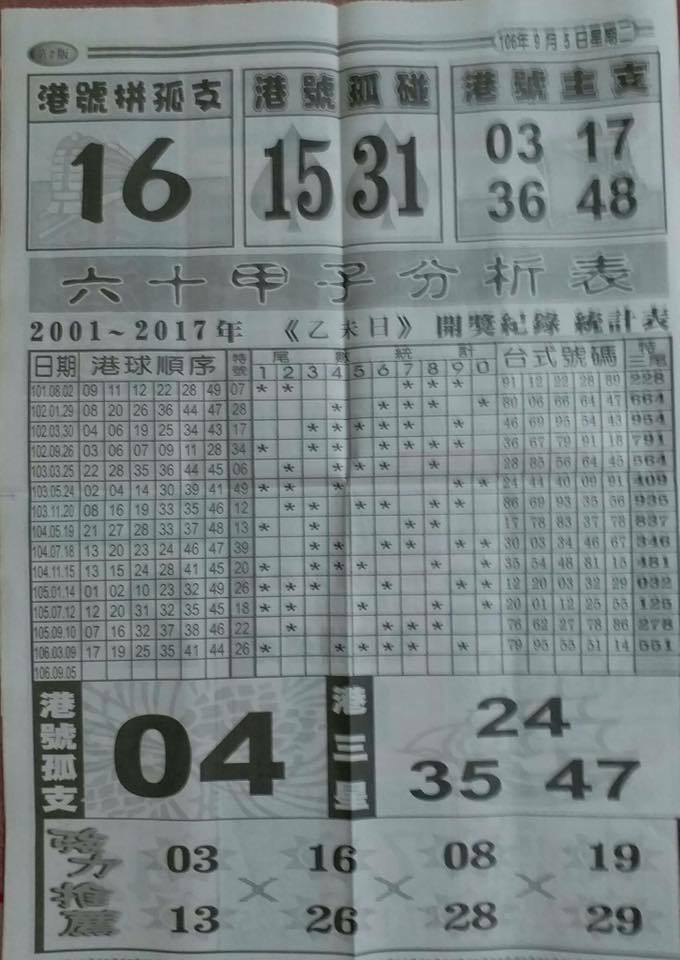 第7版
106年9月5日星期二
港號拼孤支 港號孤碰 港號主支
16 15 31 03 17
36 48
六十甲子分析表
2001~2017年 《乙未日》 開獎紀錄 統計表
日期 港球順序 特號 尾數統計 台式號碼 特三尾
1 2 3 4 5 6 7 8 9 0
101.08.02 09 11 12 22 28 49 07 * * * * * 91 12 22 28 89 228
102.01.29 08 20 26 36 44 47 28 * * * * * 80 06 66 64 47 664
102.03.30 04 06 19 25 34 43 17 * * * * * * 46 69 95 54 43 954
102.09.26 03 06 07 09 11 28 34 * * * * * * * 36 67 79 91 18 791
103.03.25 22 28 35 36 44 45 06 * * * * * 28 85 56 64 45 564
103.05.24 02 04 14 30 39 41 49 * * * * * 24 44 40 09 91 409
103.11.20 08 16 19 33 35 46 12 * * * * * * 86 69 93 35 56 935
104.05.19 21 27 28 33 37 48 13 * * * * 17 78 83 37 78 837
104.07.18 13 20 23 24 46 47 39 * * * * * * 30 03 34 46 67 346
104.11.15 13 15 24 28 41 45 20 * * * * * * 35 54 48 81 15 481
105.01.14 01 02 10 23 32 49 26 * * * * * * 12 20 03 32 29 032
105.07.12 12 20 31 32 35 45 18 * * * * * 20 01 12 25 55 125
105.09.10 07 16 32 37 38 46 22 * * * * 76 62 27 78 86 278
106.03.09 17 19 25 35 41 44 26 * * * * * * 79 95 55 51 14 551
106.09.05
港號孤支 04 港三星 24
35 47
強力推薦
03 16 08 19
× × ×
13 26 28 29